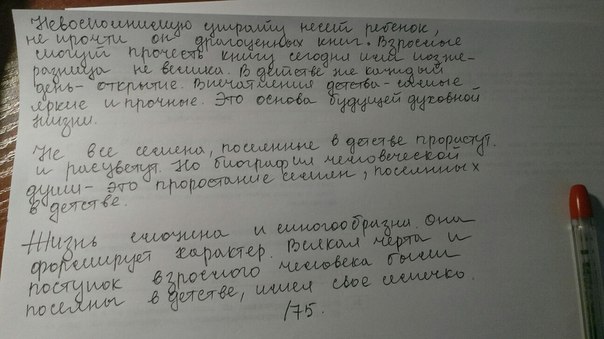 Невосполнимую утрату несет ребенок,
не прочти он драгоценных книг. Взрослые
смогут прочесть книгу сегодня или позже-
разница не велика. В детстве же каждый
день- открытие. Впечатления детства- самые
яркие и прочные. Это основа будущей духовной
жизни.
Не все семена, поселенные в детстве прорастут
и расцветут. Но биография человеческой
души- это проростание семян, поселянных
в детстве.
Жизнь сложна и многообразна. Она
формирует характер. Всякая черта и
поступок взрослого человека были
посеяны в детстве, имели свое семечко.
/75.